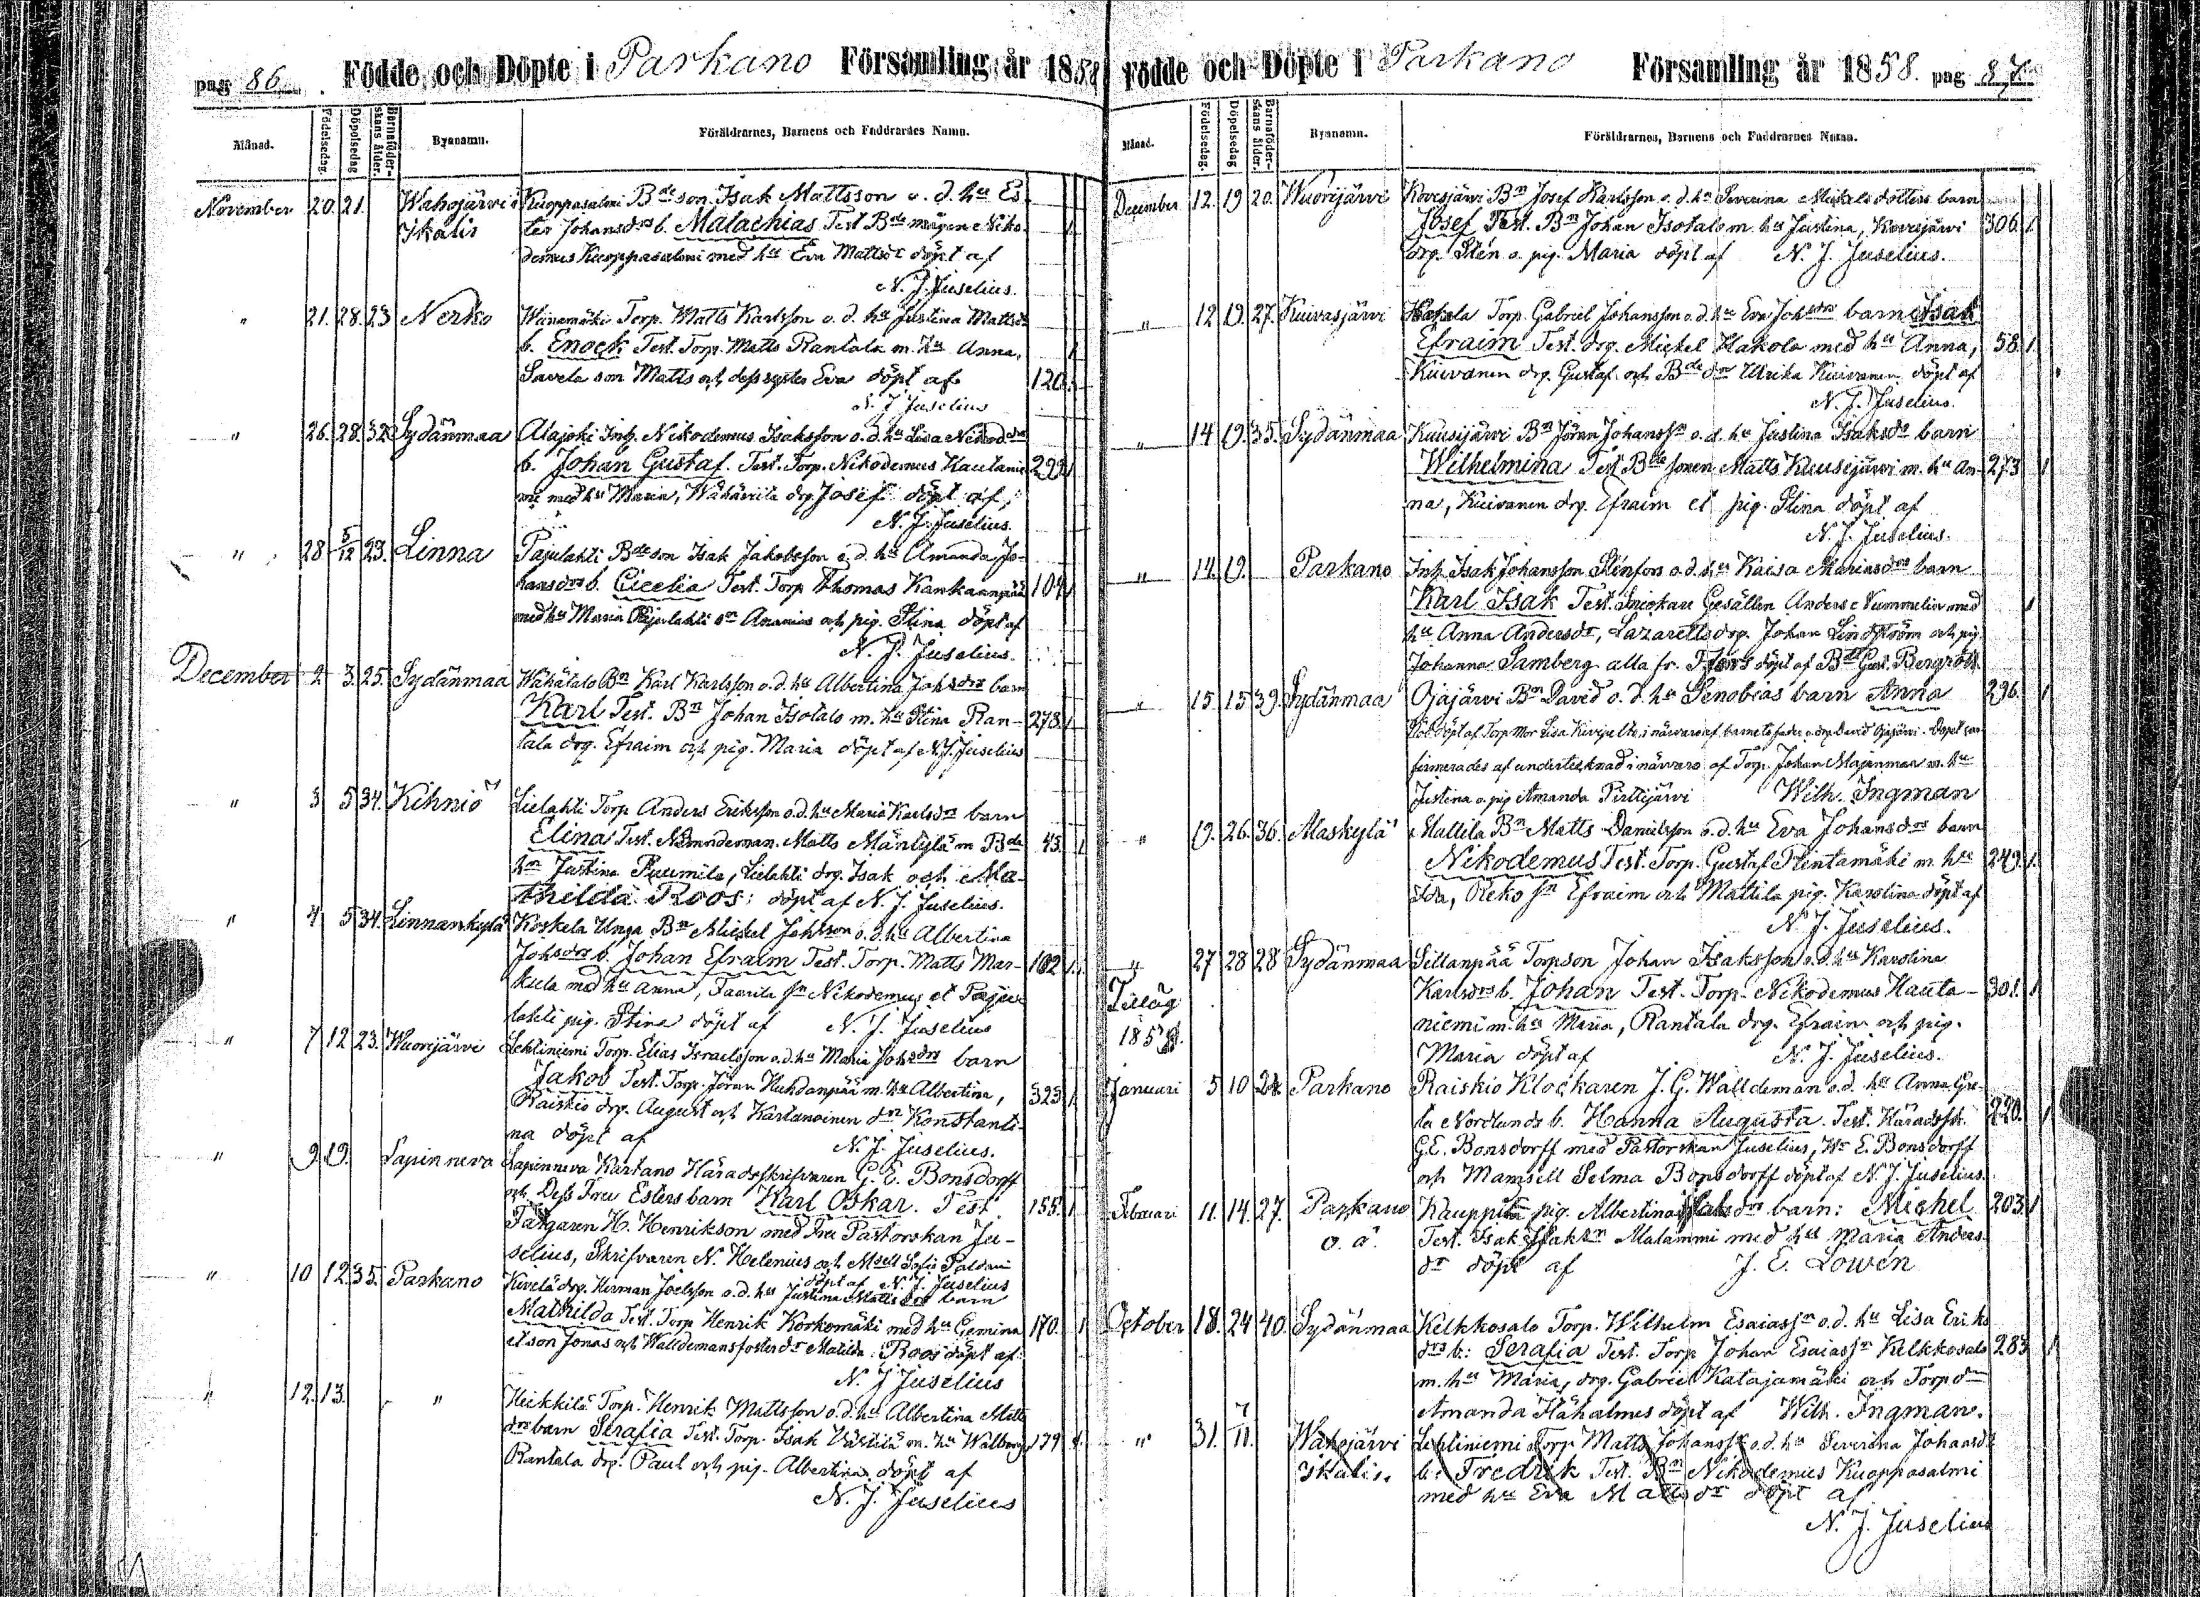 pag 86. Födde och Döpte i Parkano Församling år 1858
Månad. Födelsedag. Döpelsedag Barnaföder-skans ålder. Byanamn. Föräldrarnes, Barnens och Faddrarnes Namn.
November 20. 21. Wahojärvi i Kuoppasalmi Bde son Isak Mattsson o. d. hu Es-
Ikalis ter Johansdrs b. Malachias Test Bde mågen Niko-
demus Kuoppasalmi med hu Eva Mattsdr döpt af
N. J. Juselius.
" 21. 28. 23 Nerko Torp. Matts Karlsson o. d. hu Justina Mattsdrs
b. Enock Test. Torp. Matts Rantala m. hu Anna,
Savela son Matts och dess syster Eva döpt af 120.
N. J. Juselius
" 26. 28. 32 Sydänmaa Alajoki Inh. Nikodemus Isaksson o. d. hu Lisa Nikod.drs
b. Johan Gustaf. Test. Torp. Nikodemus Hautanie- 299
mi med hu Maria, drg Josef döpt af
N. J. Juselius.
" 28 5/12 23. Linna Pajulahti Bde son Isak Jakobsson o. d. hu Amanda Jo-
hansdrs b. Cicelia Test. Torp Thomas Kankaanpää 104
med hu Maria Pajulahti sn Ananias och pig. Stina döpt af
N. J. Juselius.
December 2 3. 25. Sydänmaa Wähätalo Bn Karl Karlsson o. d. hu Albertina Johsdrs barn
Karl Test. Bn Johan Isotalo m. hu Stina Ran- 278
tala drg. Efraim och pig. Maria döpt af N. J. Juselius
" 3 5 34. Kihniö Lielahti Torp Anders Eriksson o. d. hu Maria Karlsdrs barn
Elina Test. Nämndeman Matts Mäntylä m Bde 43.
hn Justina Puumila, Lielahti drg. Isak och Ma-
thilda Roos: döpt af N. J. Juselius.
" 4 5 34 Linnankylä Koskela Unga Bn Michel Johsson o. d. hu Albertina
Johsdrs b. Johan Efraim Test. Torp. Matts Mar- 102
kula med hu Anna, Taarila sn Nikodemus et Paju-
lahti pig. Stina döpt af N. J. Juselius
" 7 12 23. Wuorijärvi Lehliniemi Torp. Elias Israelsson o. d. hu Maria Johsdrs barn
Jakob Test. Torp. Jöran Huhdanpää m. hu Albertina, 323
Raiskio drg. August och Kartanoinen dr Konstanti-
na döpt af N. J. Juselius.
" 9. 19. Lapinneva Lapinneva Kartano Häradsskrifvaren G. E. Bonsdorff
och Dess Fru Esters barn Karl Oskar. Test. 155.
Färgaren H. Henrikson med Fru Pastorskan Ju-
selius, Skrifvaren N. Helenius och Msell Sofie Paldani
döpt af N. J. Juselius
" 10 12 35. Parkano Kivelä drg. Herman Joelsson o. d. hu Justina Mattsdrs barn
Mathilda Test. Torp Henrik Korkomäki med hu Gemina 170.
et son Jonas och Walldemans fosterdr Matilda Roos döpt af
N. J. Juselius
" 12. 13. " Heikkilä Torp. Henrik Mattsson o. d. hu Albertina Matts
drs barn Serafia Test. Torp. Isak Västilä m. hu Walborg 179
Rantala drg. Paul och pig. Albertina döpt af
N. J. Juselius
Födde och Döpte i Parkano Församling år 1858. pag 87.
Månad. Födelsedag. Döpelsedag Barnaföder-skans ålder. Byanamn. Föräldrarnes, Barnens och Faddrarnes Namn.
December 12. 19 20. Wuorijärvi Kovesjärvi Bn Josef Karlsson o. d. hu Severina Mickelsdotters barn
Josef Test. Bn Johan Isotalo m. hu Justina, Kovesjärvi 306.
drg. Sten o. pig. Maria döpt af N. J. Juselius.
" 12 19. 27. Kuivasjärvi Hakola Torp. Gabriel Johansson o. d. hu Eva Johsdrs barn Isak
Efraim Test. drg. Michel Hakola med hu Anna, 58.
Kuivanen drg. Gustaf och Bde dr Ulrika Kuivanen döpt af
N. J. Juselius.
" 14 19. 35. Sydänmaa Kuusijärvi Bn Jöran Johanssn o. d. hu Justina Isaksdrs barn
Wilhelmina Test Bde sonen Matts Kuusijärvi m. hu An- 273
na, Kuivanen drg. Efraim et pig. Stina döpt af
N. J. Juselius.
" 14. 19. Parkano Inh. Isak Johansson Stenfors o. d. hu Kaisa Mariasdrs barn
Karl Isak Test. Snickare Gesällen Anders Nummelin med
hu Anna Andersdr, Lazarettsdrg. Johan Lindström och pig.
Johanna Samberg alla fr. döpt af Gust. Bergroth.
" 15. 15 39. Sydänmaa Ojajärvi Bn David o. d. hu Senobias barn Anna 296.
Nöddöpt af Torp. Mor Lisa i närvaro af barnets fader o. drg David Ojajärvi. Dopet con-
firmerades af undertecknad i närvaro af Torp. Johan Majanmaa m. hu
Justina o. pig Amanda Pirttijärvi Wilh. Ingman
" 19. 26. 36. Alaskylä Mattila Bn Matts Danielsson o. d. hu Eva Johansdrs barn
Nikodemus Test. Torp. Gustaf m. hu 249.
Ida, sn Efraim och Mattila pig. Karolina döpt af
N. J. Juselius.
" 27 28 28 Sydänmaa Sillanpää Torpson Johan Isaksson o. d. hu Karolina
Karlsdrs b. Johan Test. Torp. Nikodemus Hauta- 301.
niemi m. hu Maria, Rantala drg. Efraim och pig.
Maria döpt af N. J. Juselius.
Tilläg
1858.
Januari 5 10 Parkano Raiskio Klockaren J. G. Walldeman o. d. hu Anna Gre-
ta Nordlunds b. Hanna Augusta. Test. Häradsskr. 220.
G. E. Bonsdorff med Pastorskan Juselius, Hr E. Bonsdorff
och Mamsell Selma Bonsdorff döpt af N. J. Juselius.
Februari 11. 14. 27. Parkano Kauppila pig. Albertina Isaksdrs barn: Michel 203
o. a. Test. Isak Isaksn Malammi med hu Maria Anders-
dr döpt af J. E. Lowén
October 18. 24 40. Sydänmaa Kelkkosalo Torp. Wilhelm Esaiassn o. d. hu Lisa Eriks
drs b: Serafia Test. Torp Johan Esaiassn Kelkkosalo 283
m. hu Maria, drg. Gabriel Katajamäki och Torpdn
Amanda Hähalmes döpt af Wilh. Ingman.
" 31. 7/11. Wahojärvi Lehliniemi Torp Matts Johanssn o. d. hu Severina Johansdrs
Ikalis. b: Fredrik Test. Bn Nikodemus Kuoppasalmi
med hu Eva Mattsdr döpt af
N. J. Juselius